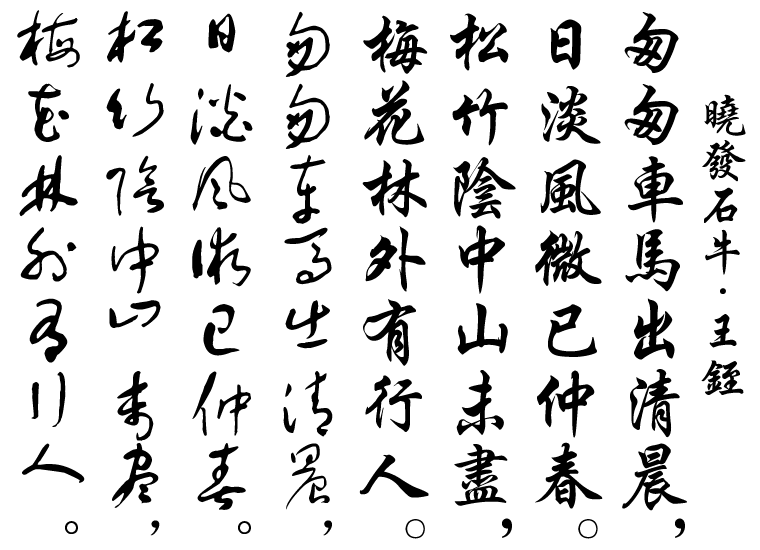 曉發石牛·王銍
匆匆車馬出清晨，
日淡風微已仲春。
松竹陰中山未盡，
梅花林外有行人。
匆匆車馬出清晨，
日淡風微已仲春。
松竹陰中山未盡，
梅花林外有行人。